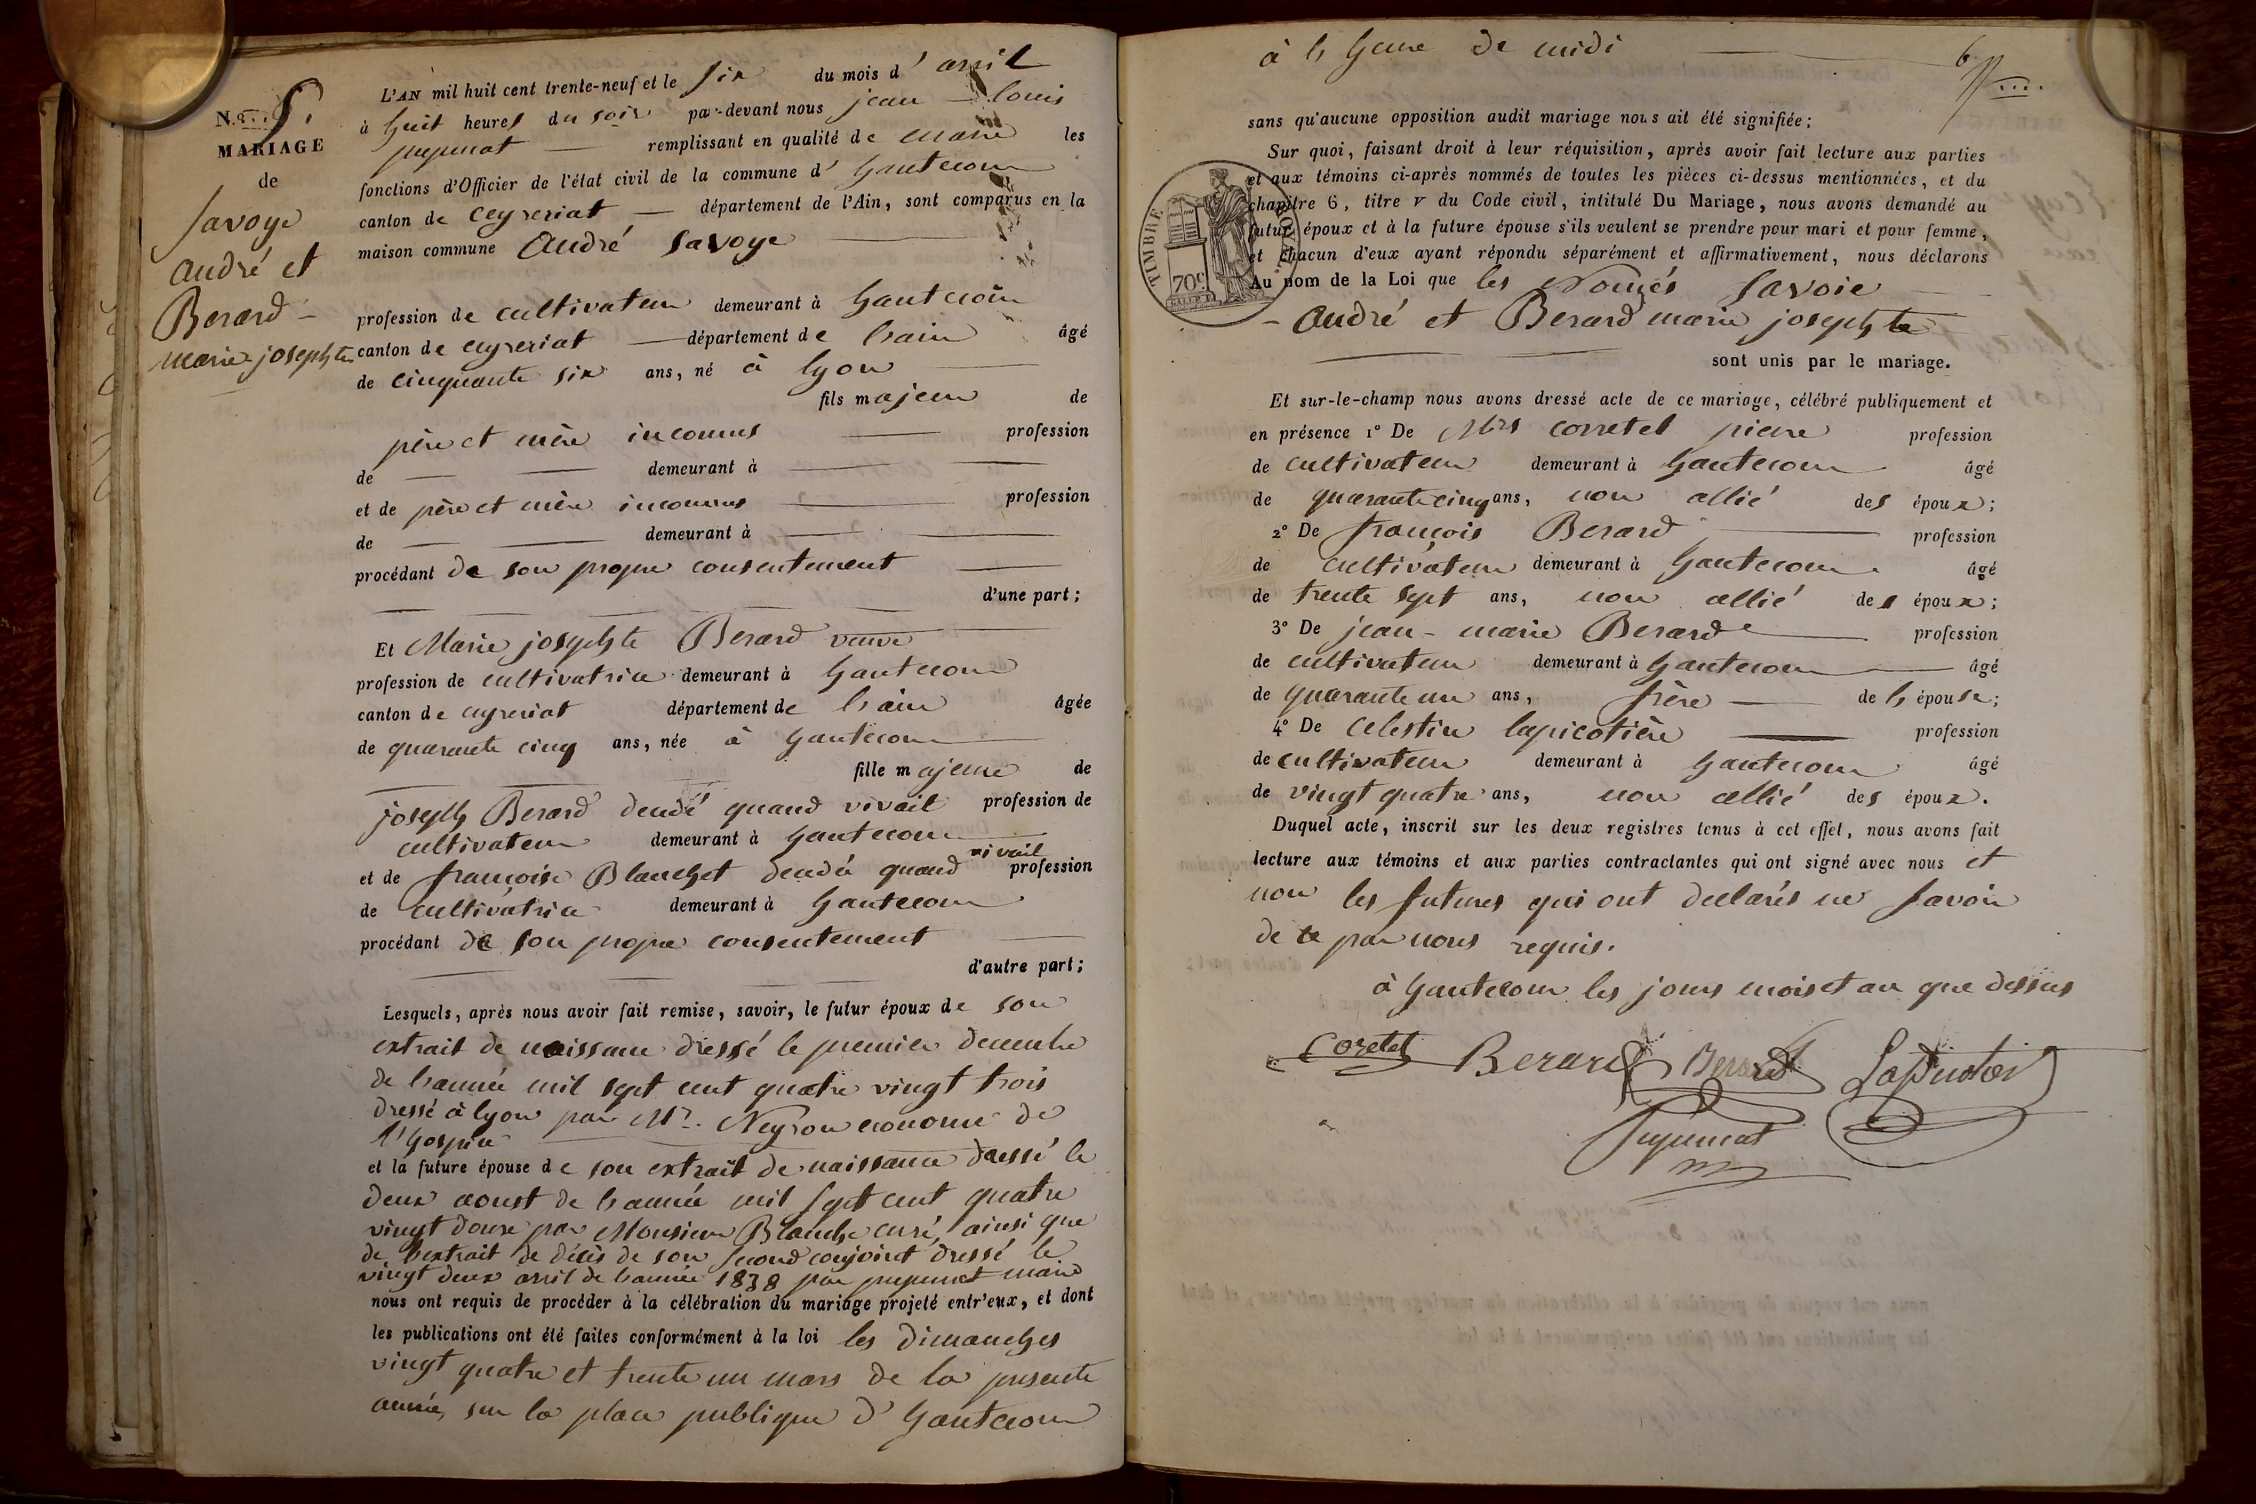 N.o 5.
MARIAGE
de
Savoye
andré et
Berard
marie josephte
L'AN mil huit cent trente-neuf et le six du mois d'avril
à huit heures du soir par-devant nous jean louis
pupunat remplissant en qualité de maire les
fonctions d'Officier de l'état civil de la commune d'hautecour
canton de ceyzeriat département de l'Ain, sont comparus en la
maison commune André Savoye
profession de cultivateur demeurant à hautecour
canton de ceyzeriat département de lain âgé
de cinquante six ans, né à lyon
fils majeur de
père et mère inconnus profession
de demeurant à
et de père et mère inconnus profession
de demeurant à
procédant de son propre consentement
d'une part;
Et Marie josephte Berard veuve
profession de cultivatrice demeurant à hautecour
canton de ceyzeriat département de lain âgée
de quarante cinq ans, née à hautecour
fille majeure de
joseph Berard decedé quand vivait profession de
cultivateur demeurant à hautecour
et de françoise Blanchet decedée quand vivait profession
de cultivatrice demeurant à hautecour
procédant de son propre consentement
d'autre part;
Lesquels, après nous avoir fait remise, savoir, le futur époux de son
extrait de naissance dressé le premier decembre
de lannée mil sept cent quatre vingt trois
dressé à lyon par Mr. Neyron econome de
l'hospice
et la future épouse de son extrait de naissance dressé le
deux aoust de lannée mil sept cent quatre
vingt douze par Monsieur Blanche curé, ainsi que
de lextrait de décès de son second conjoint dressé le
vingt deux avril de lannée 1838 par pupunat maire
nous ont requis de procéder à la célébration du mariage projeté entr'eux, et dont
les publications ont été faites conformément à la loi les dimanches
vingt quatre et trente un mars de la presente
année, sur la place publique d'hautecour
à lheure de midi
6
sans qu'aucune opposition audit mariage nous ait été signifiée;
Sur quoi, faisant droit à leur réquisition, après avoir fait lecture aux parties
et aux témoins ci-après nommés de toutes les pièces ci-dessus mentionnées, et du
chapitre 6, titre V du Code civil, intitulé Du Mariage, nous avons demandé au
futur époux et à la future épouse s'ils veulent se prendre pour mari et pour femme,
et chacun d'eux ayant répondu séparément et affirmativement, nous déclarons
Au nom de la Loi que les Només Savoie
André et Berard marie josephte
sont unis par le mariage.
TIMBRE ROYAL
70c
Et sur-le-champ nous avons dressé acte de ce mariage, célébré publiquement et
en présence 1° De Mrs corretel pierre profession
de cultivateur demeurant à hautecour âgé
de quarante cinq ans, non allié des époux;
2° De françois Berard profession
de cultivateur demeurant à hautecour âgé
de trente sept ans, non allié des époux;
3° De jean-marie Berard profession
de cultivateur demeurant à hautecour âgé
de quarante un ans, frère de lépouse;
4° De celestin lapicotière profession
de cultivateur demeurant à hautecour âgé
de vingt quatre ans, non allié des époux.
Duquel acte, inscrit sur les deux registres tenus à cet effet, nous avons fait
lecture aux témoins et aux parties contractantes qui ont signé avec nous et
non les futures qui ont declarés ne savoir
de ce par nous requis.
à hautecour les jours mois et an que dessus
Coretel Berard Berard
Pupunat